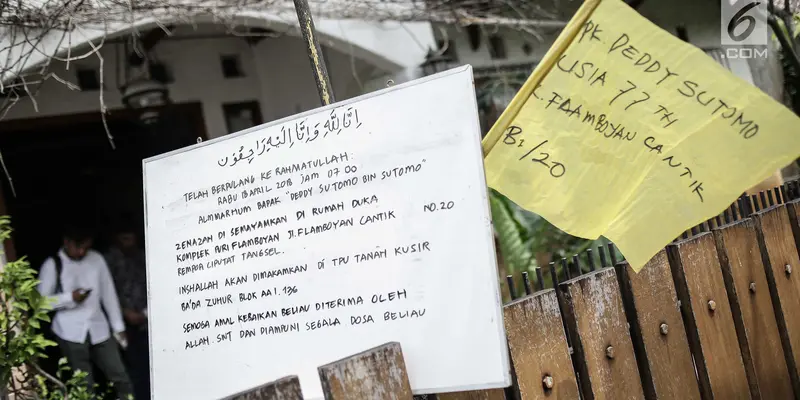 إِنَّا لِلّٰهِ وَإِنَّا إِلَيْهِ رَاجِعُوْنَ
TELAH BERPULANG KE RAHMATULLAH:
RABU 18 APRIL 2018 JAM 07 00
ALMMARHUM BAPAK "DEDDY SUTOMO BIN SUTOMO"
ZENAZAH DI SEMAYAMKAN DI RUMAH DUKA
KOMPLEK PURI FLAMBOYAN JL. FLAMBOYAN CANTIK NO. 20
REMPOA CIPUTAT TANGSEL.
INSHALLAH AKAN DIMAKAMKAN DI TPU TANAH KUSIR
BA'DA ZUHUR BLOK AA I. 136
SEMOGA AMAL KEBAIKAN BELIAU DITERIMA OLEH
ALLAH. SWT DAN DIAMPUNI SEGALA DOSA BELIAU
PK DEDDY SUTOMO
USIA 77 TH
L. FLAMBOYAN CANTIK
B1/20
6
.COM